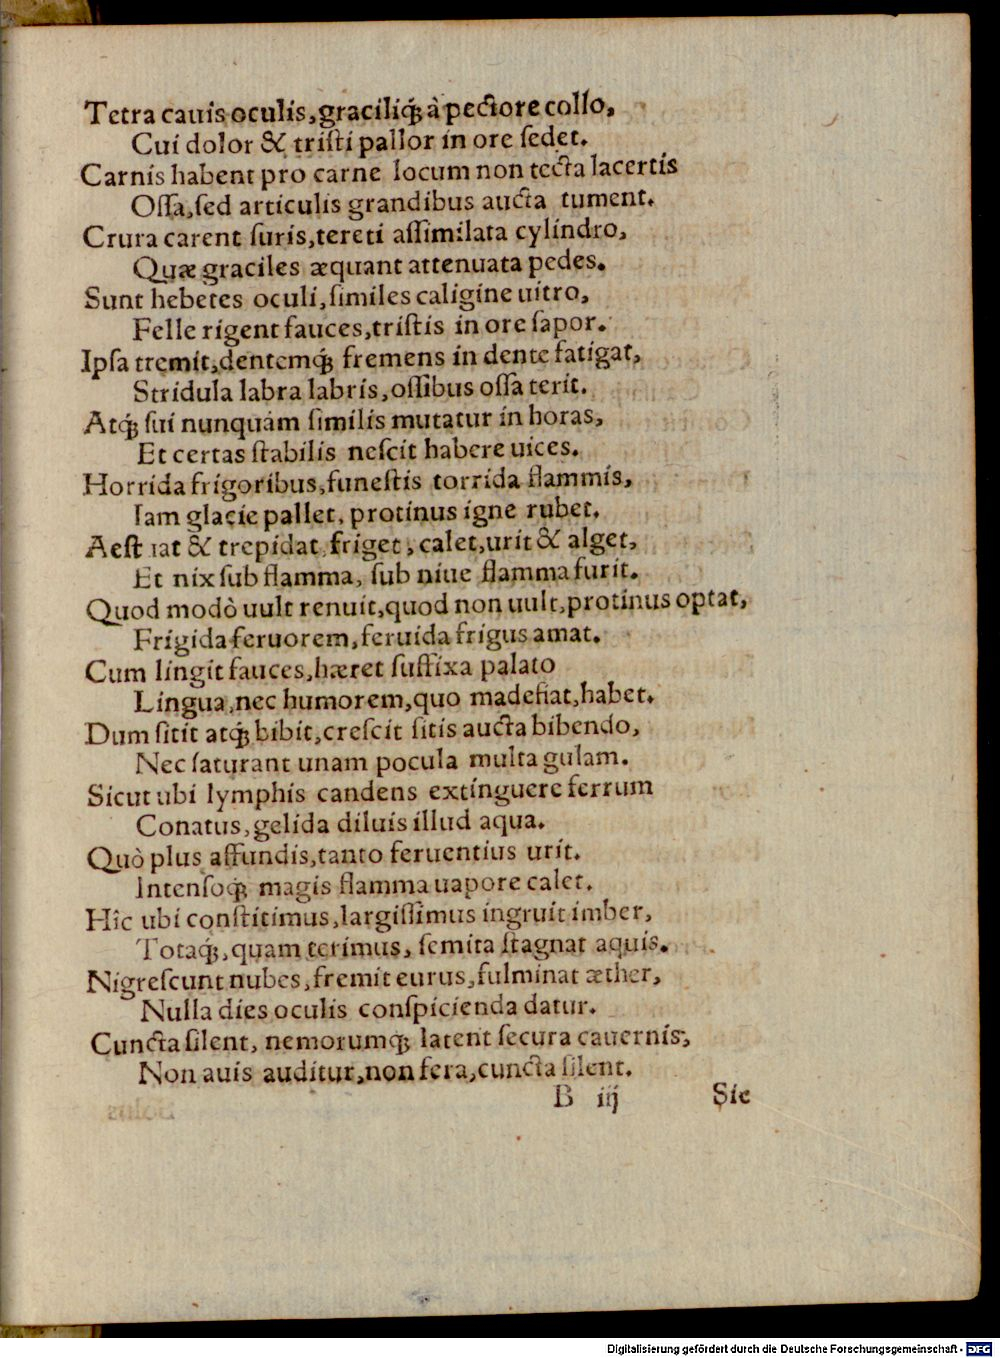 Tetra cauis oculis, graciliq́ꝫ à pectore collo,
Cui dolor & tristi pallor in ore sedet.
Carnis habent pro carne locum non tecta lacertis
Ossa, sed articulis grandibus aucta tument.
Crura carent suris, tereti assimilata cylindro,
Quæ graciles æquant attenuata pedes.
Sunt hebetes oculi, similes caligine uitro,
Felle rigent fauces, tristis in ore sapor.
Ipsa tremit, dentemq́ꝫ fremens in dente fatigat,
Stridula labra labris, ossibus ossa terit.
Atq́ꝫ sui nunquam similis mutatur in horas,
Et certas stabilis nescit habere uices.
Horrida frigoribus, funestis torrida flammis,
Iam glacie pallet, protinus igne rubet.
Aest iat & trepidat, friget, calet, urit & alget,
Et nix sub flamma, sub niue flamma furit.
Quod modò uult renuit, quod non uult, protinus optat,
Frigida feruorem, feruida frigus amat.
Cum lingit fauces, hæret suffixa palato
Lingua, nec humorem, quo madefiat, habet.
Dum sitit atq́ꝫ bibit, crescit sitis aucta bibendo,
Nec saturant unam pocula multa gulam.
Sicut ubi lymphis candens extinguere ferrum
Conatus, gelida diluis illud aqua.
Quò plus affundis, tanto feruentius urit.
Intensoq́ꝫ magis flamma uapore calet.
Hîc ubi constitimus, largissimus ingruit imber,
Totaq́ꝫ, quam terimus, semita stagnat aquis.
Nigrescunt nubes, fremit eurus, fulminat æther,
Nulla dies oculis conspicienda datur.
Cuncta silent, nemorumq́ꝫ latent secura cauernis,
Non auis auditur, non fera, cuncta silent.
B iij Sic
Digitalisierung gefördert durch die Deutsche Forschungsgemeinschaft - DFG